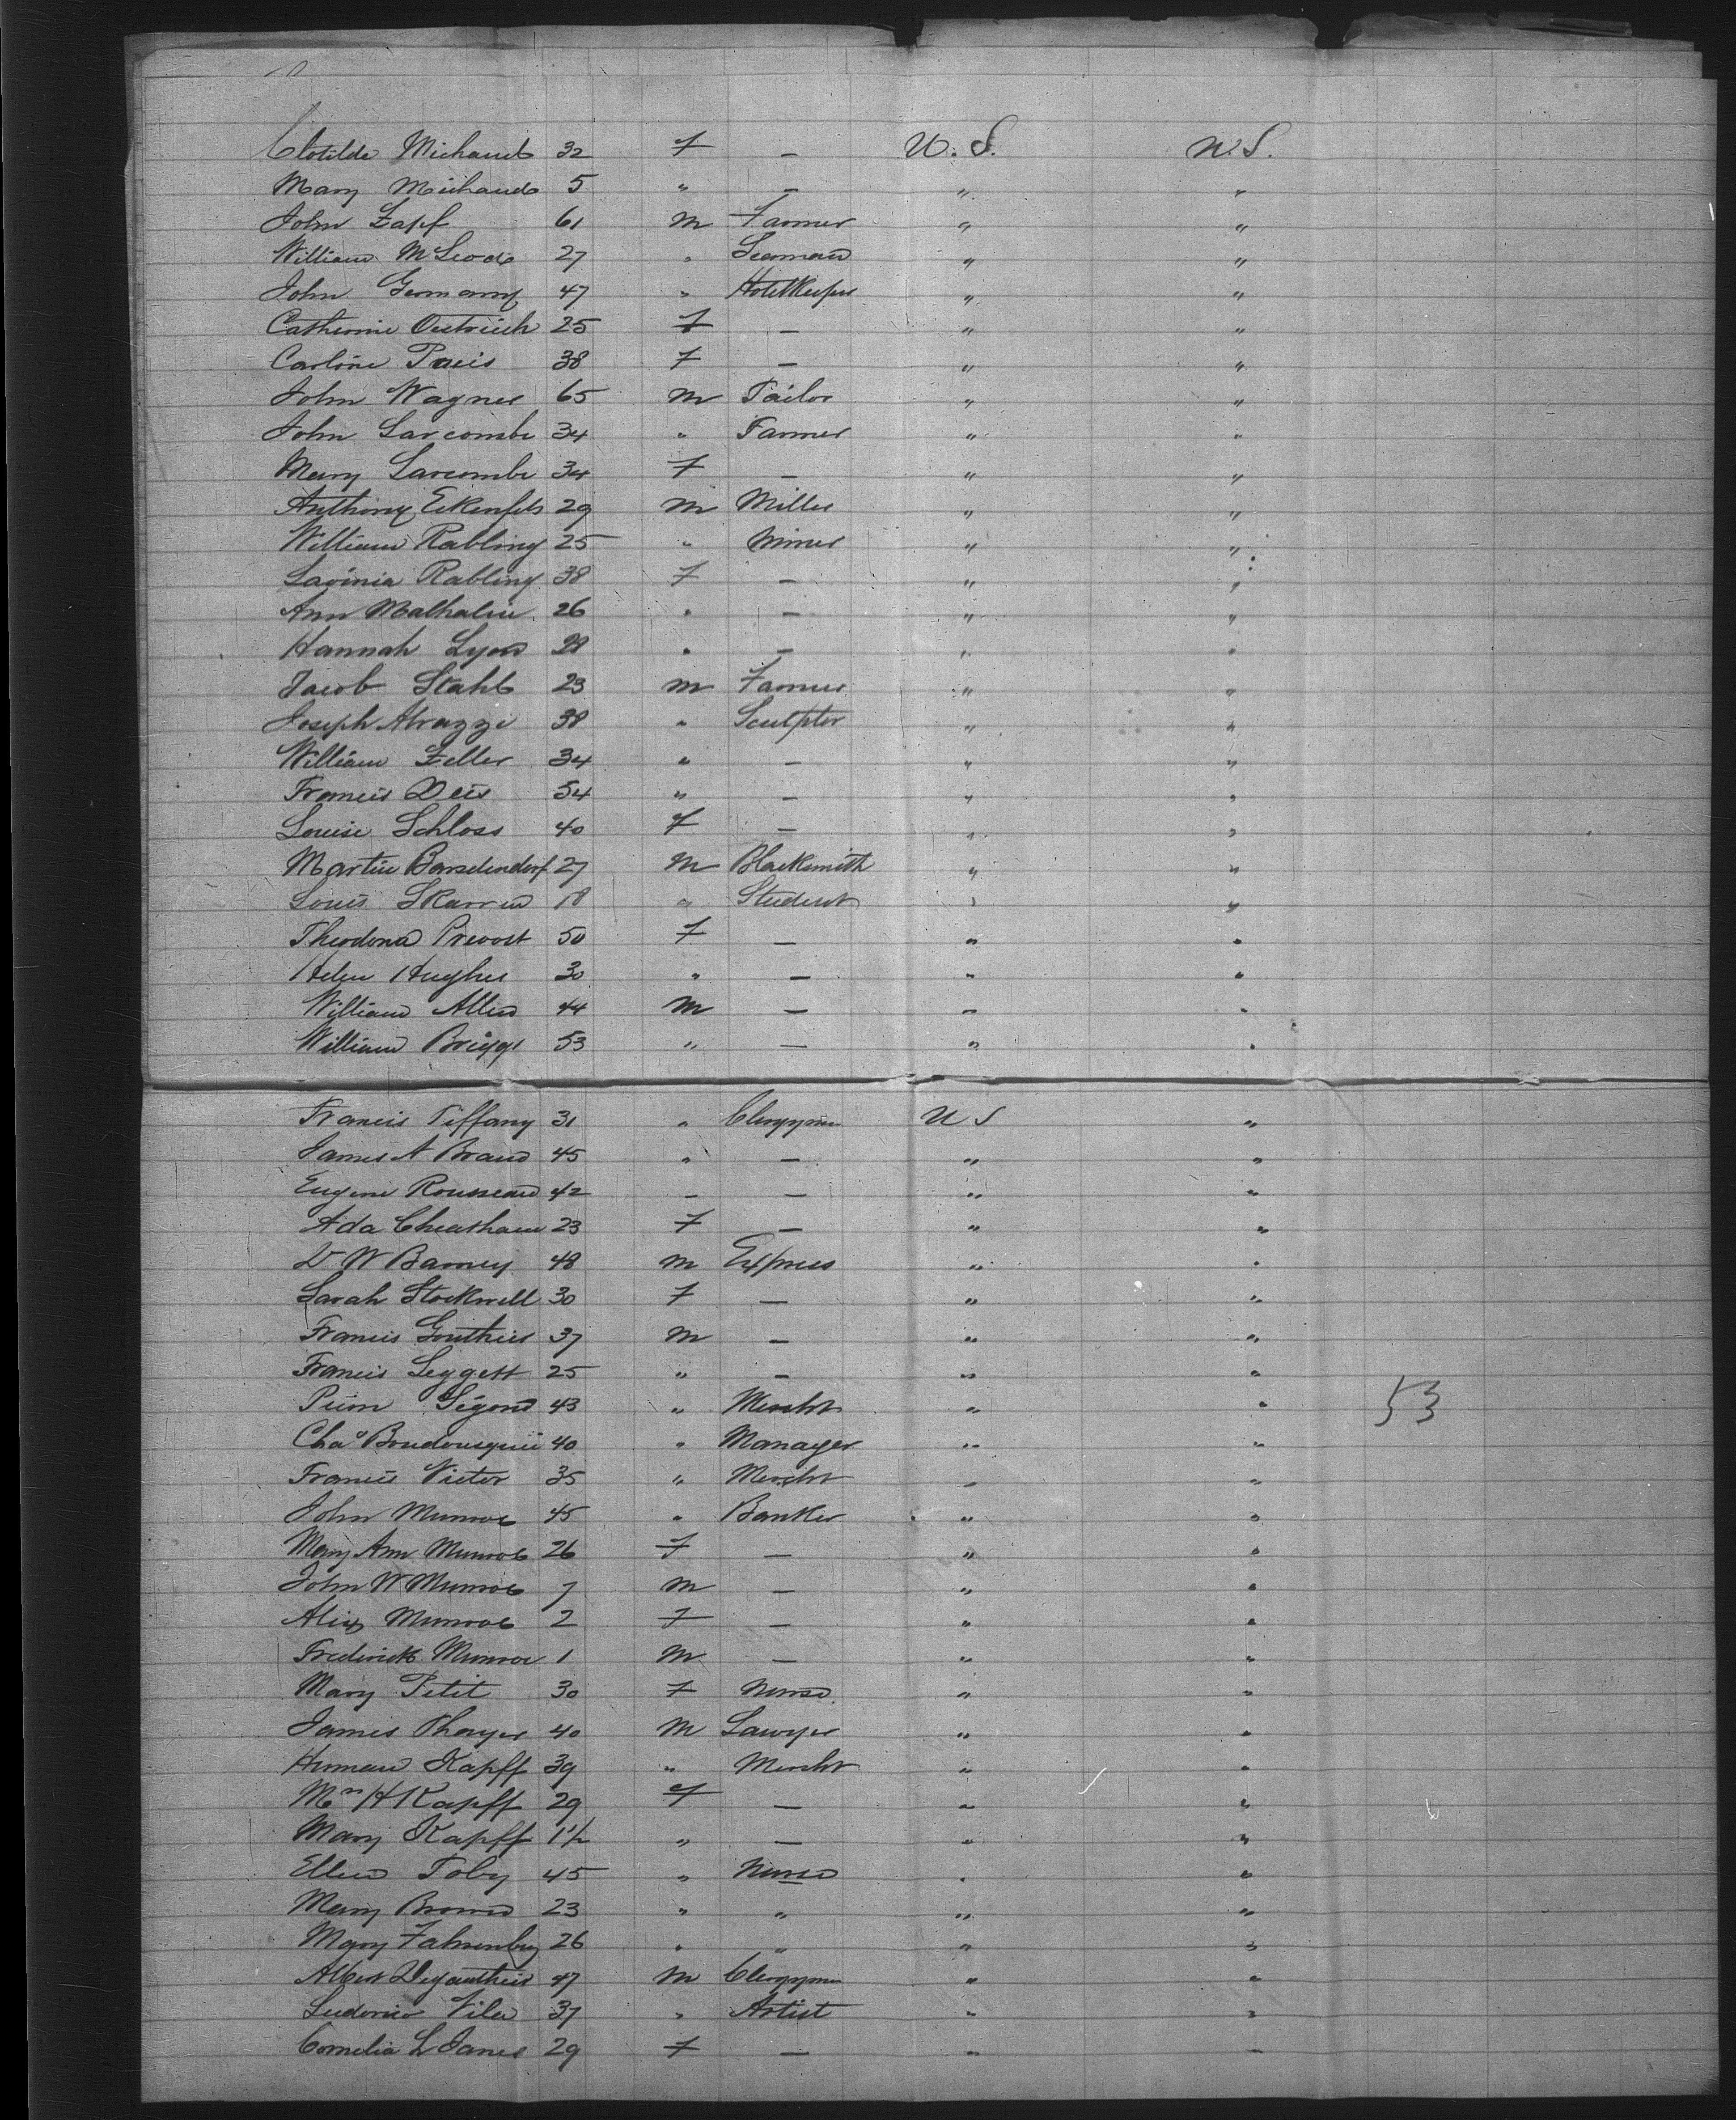 Clotilde Michaud 32 F — U.S. U.S.
Mary Michaud 5 " — " "
John Zapf 61 M Farmer " "
William McLeod 27 " Seaman " "
John Germany 47 " Hotelkeeper " "
Catherine Oestrich 25 F — " "
Carline 38 F — " "
John Wagner 65 M Tailor " "
John Larcombe 34 " Farmer " "
Mary Larcombe 34 F — " "
Anthony Eikenfels 29 M Miller " "
William Rabling 25 " Miner " "
Lavinia Rabling 38 F — " "
Ann 26 " — " "
Hannah Lyon 28 " — " "
Jacob Stahl 23 M Farmer " "
Joseph Abrazzi 38 " Sculptor " "
William Zeller 34 " — " "
Francis Deis 54 " — " "
Louise Schloss 40 F — " "
Martin Barsdendorf 27 M Blacksmith " "
Louis 18 " Student " "
Theodora Prevost 50 F — " "
Helen Hughes 30 " — " "
William Allen 44 M — " "
William Briggs 53 " — " "
Francis Tiffany 31 " Clergyman U S "
James A Brand 45 " — " "
Eugene Rousseau 42 — — " "
Ada Cheatham 23 F — " "
D W Barney 48 M Express " "
Sarah Stockwell 30 F — " "
Francis Gouthier 37 M — " "
Francis Leggett 25 " — " "
Segond 43 " Mercht " " 53
Chas Boudousquie 40 " Manager " "
Francis Victor 35 " Mercht " "
John Munroe 45 " Banker " "
Mary Ann Munroe 26 F — " "
John W Munroe 7 M — " "
Alix Munroe 2 F — " "
Frederick Munroe 1 M — " "
Mary Petit 30 F Nurse " "
James Thayer 40 M Lawyer " "
Herman Kapff 39 " Mercht " "
Mrs H Kapff 29 F — " "
Mary Kapff 1½ " — " "
Ellen Toby 45 " Nurse " "
Mary Brown 23 " " " "
Mary Fahrenberg 26 " " " "
Albert 47 M Clergyman " "
Ludovico Vila 37 " Artist " "
Cornelia L Janes 29 F — " "